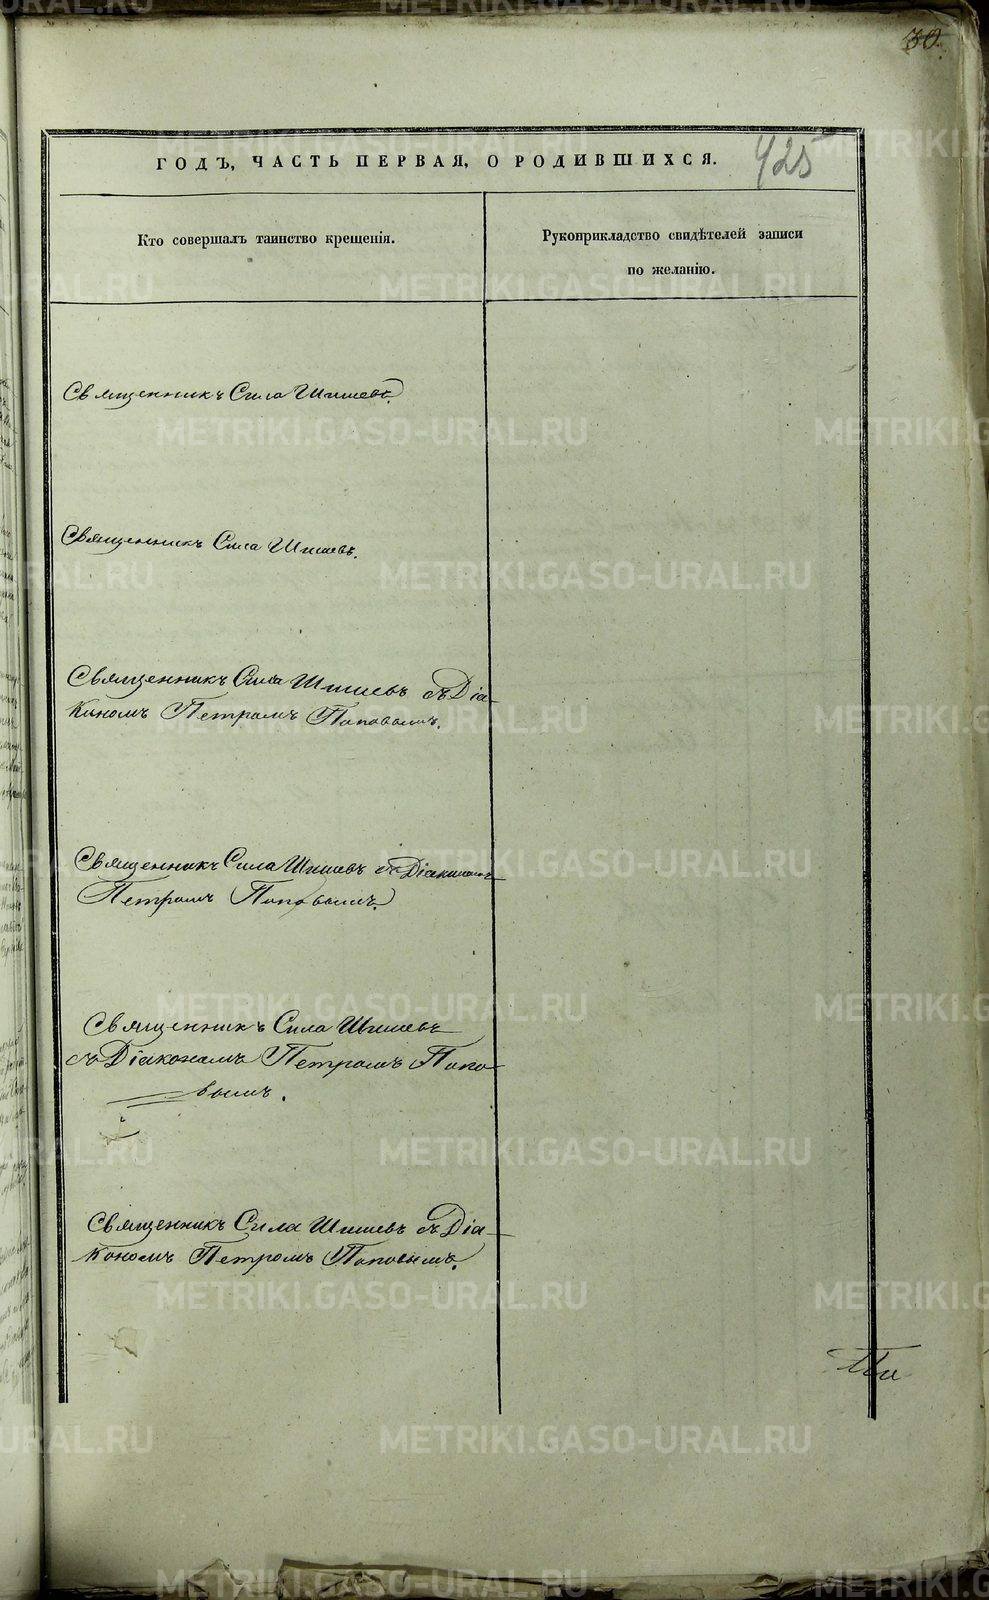 30.
925
ГОДЪ, ЧАСТЬ ПЕРВАЯ, О РОДИВШИХСЯ.
Кто совершалъ таинство крещенія.
Рукоприкладство свидѣтелей записи
по желанію.
Священникъ Сила Шишевъ.
Священникъ Сила Шишевъ.
Священникъ Сила Шишевъ съ Діа-
кономъ Петромъ Поповымъ.
Священникъ Сила Шишевъ съ Діакономъ
Петромъ Поповымъ.
Священникъ Сила Шишевъ
съ Діакономъ Петромъ Попо-
вымъ.
Священникъ Сила Шишевъ съ Діа-
кономъ Петромъ Поповымъ.
METRIKI.GASO-URAL.RU